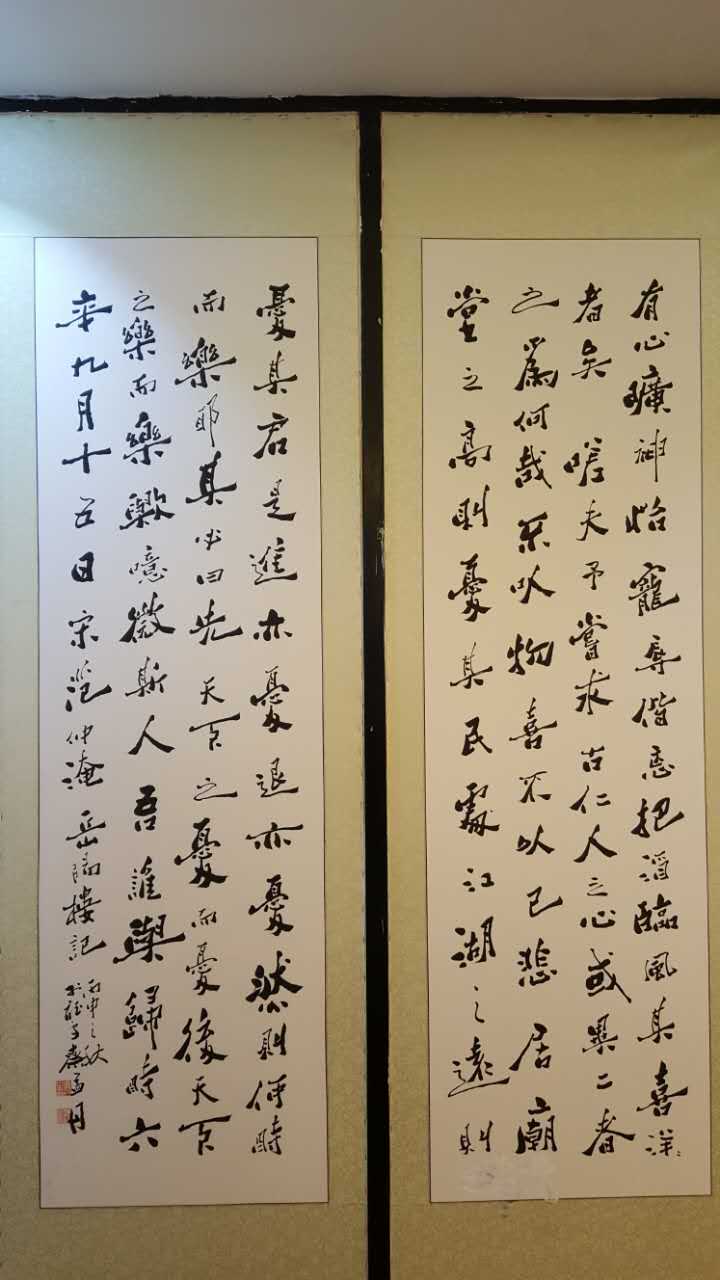 有心曠神怡寵辱偕忘把酒臨風其喜洋々
者矣嗟夫予嘗求古仁人之心或異二者
之爲何哉不以物喜不以己悲居廟
堂之高則憂其民處江湖之遠則
憂其君是進亦憂退亦憂然則何時
而樂耶其必曰先天下之憂而憂後天下
之樂而樂歟噫微斯人吾誰與歸時六
年九月十五日宋范仲淹岳陽樓記
丙申之秋